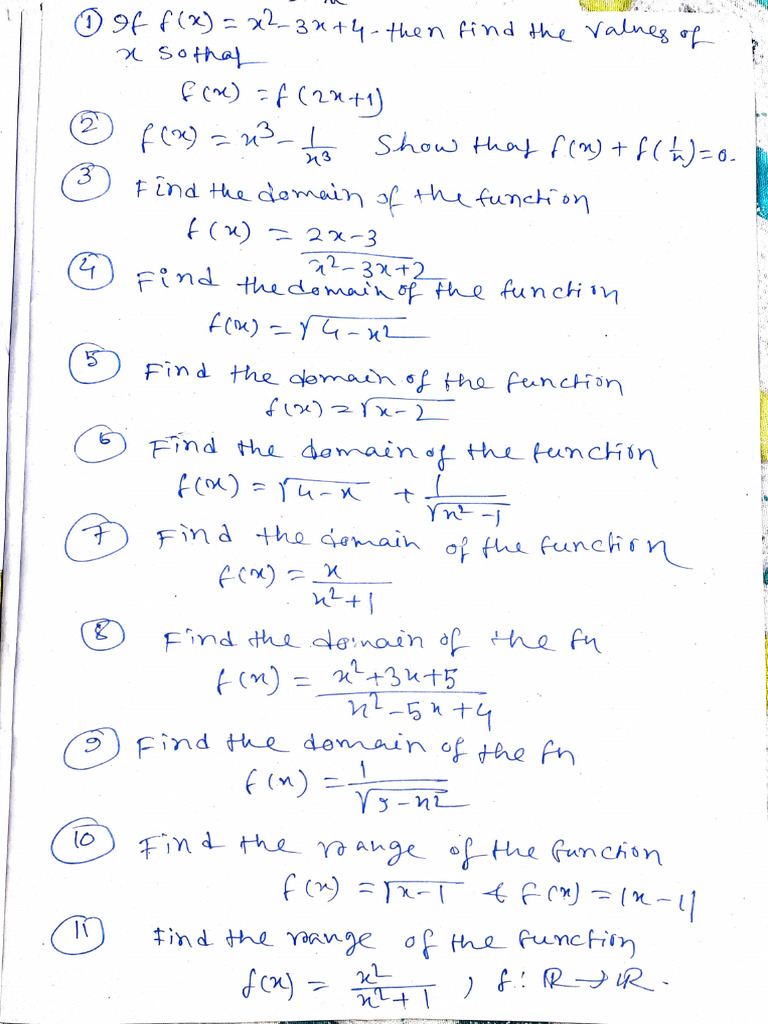 ① If f(x) = x² - 3x + 4 - then find the values of
x so that
f(x) = f(2x+1)
② f(x) = x³ - 1/x³ Show that f(x) + f(1/x) = 0.
③ Find the domain of the function
f(x) = (2x-3)/(x²-3x+2)
④ Find the domain of the function
f(x) = √(4-x²)
⑤ Find the domain of the function
f(x) = √(x-2)
⑥ Find the domain of the function
f(x) = √(4-x) + 1/√(x²-1)
⑦ Find the domain of the function
f(x) = x/(x²+1)
⑧ Find the domain of the fn
f(x) = (x²+3x+5)/(x²-5x+4)
⑨ Find the domain of the fn
f(x) = 1/√(9-x²)
⑩ Find the range of the function
f(x) = √(x-1) & f(x) = |x-1|
⑪ Find the range of the function
f(x) = x²/(x²+1) ; f: ℝ → ℝ.